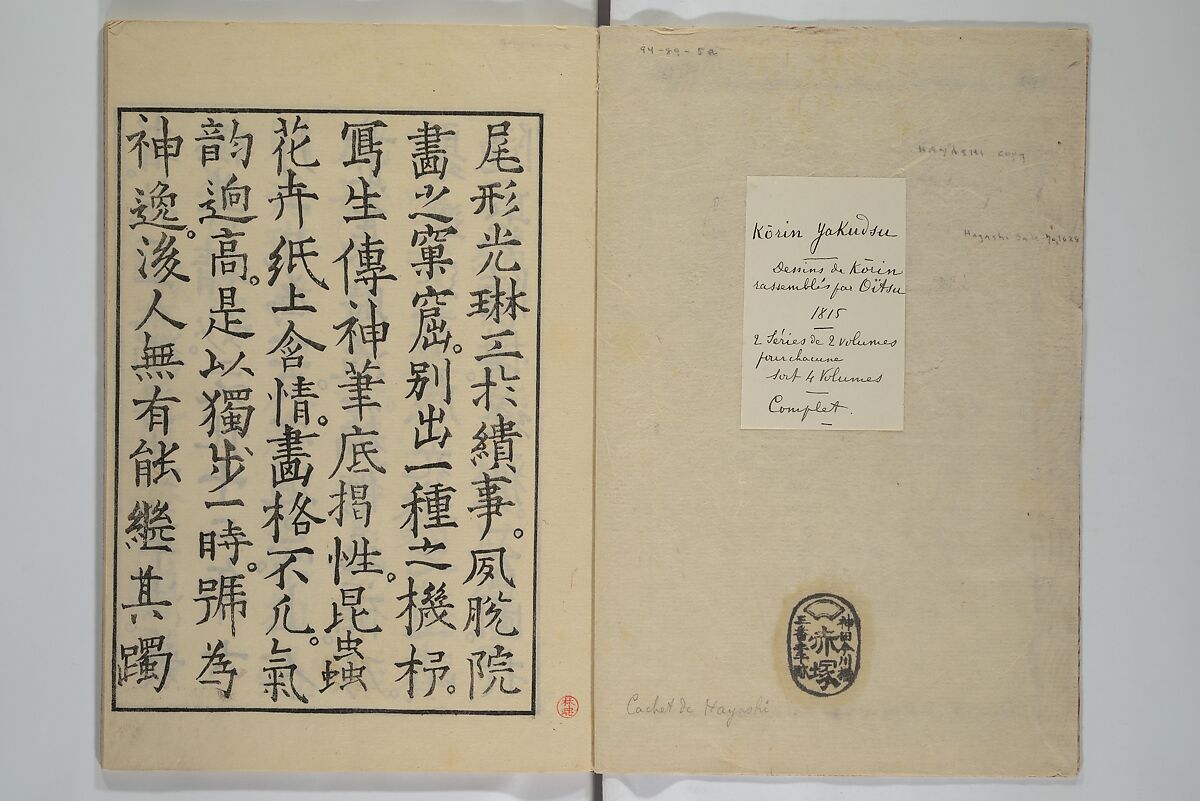 尾形光琳工扵繢事。夙脫院
畫之窠窟。別出一種之機杼。
寫生傳神筆底揭性。昆蟲
花卉紙上含情。畫格不凡。氣
韵逈高。是以獨步一時。號為
神逸。後人無有能繼其躅
HAYASHI copy
Kōrin Yakudsu
Dessins de Kōrin
rassemblés par Oïtsu
1815
2 Séries de 2 volumes
pour chacune
soit 4 Volumes
Complet.
赤塚
Cachet de Hayashi